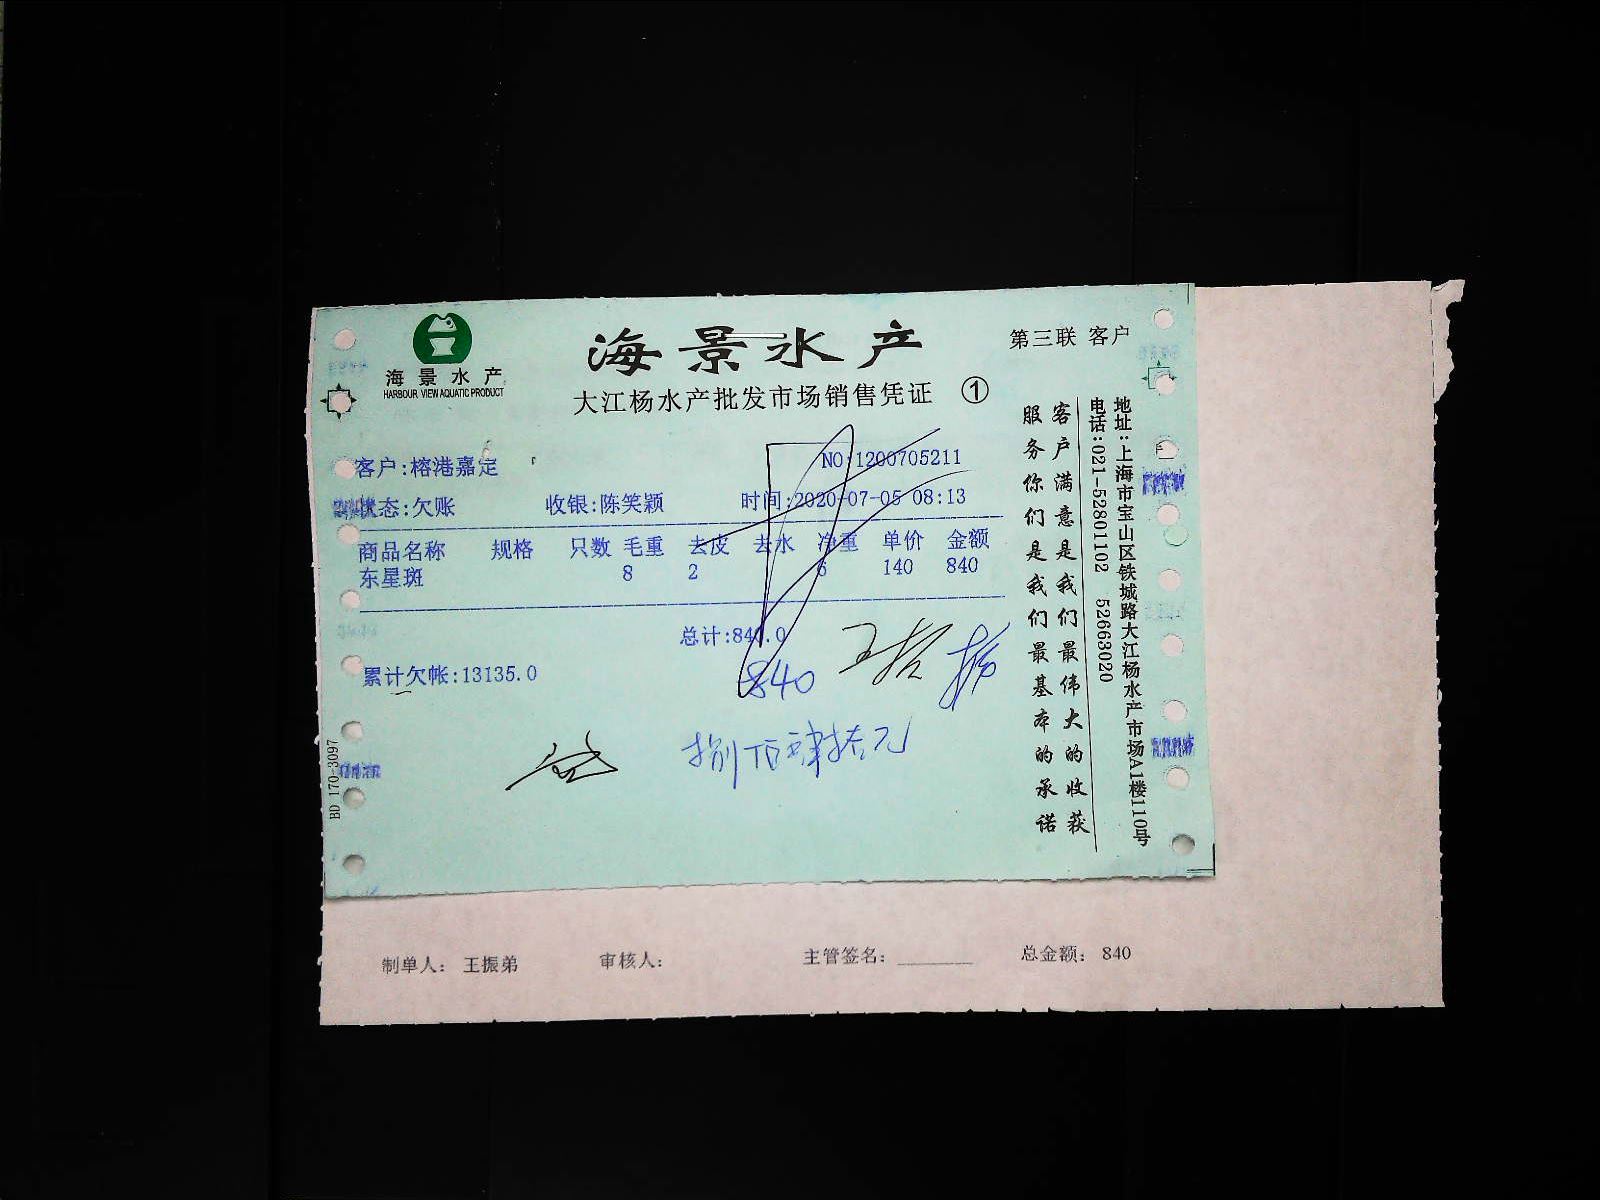 海景水产
HARBOUR VIEW AQUATIC PRODUCT
海景水产
大江杨水产批发市场销售凭证 ①
第三联 客户
客户:榕港嘉定
NO:1200705211
状态:欠账 收银:陈笑颖 时间:2020-07-05 08:13
商品名称 规格 只数 毛重 去皮 去水 净重 单价 金额
东星斑 8 2 6 140 840
总计:840.0
累计欠帐:13135.0
840
捌佰肆拾元
地址:上海市宝山区铁城路大江杨水产市场A1楼110号
电话:021-52801102 52663020
客户满意是我们最伟大的收获
服务你们是我们最基本的承诺
BD 170-3097
制单人: 王振弟 审核人: 主管签名: 总金额: 840